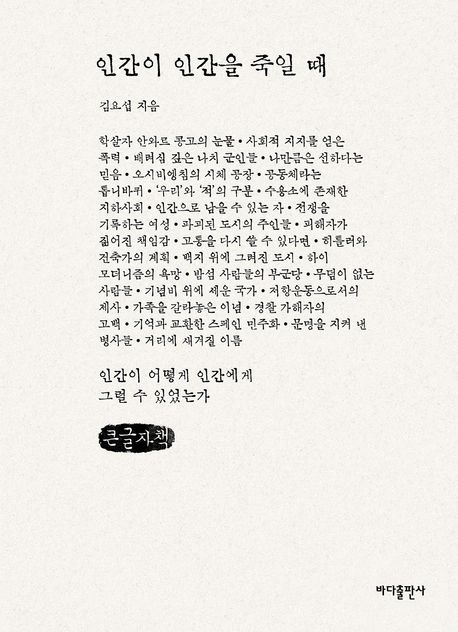 인간이 인간을 죽일 때
김요섭 지음
학살자 안와르 콩고의 눈물 • 사회적 지지를 얻은
폭력 • 배려심 깊은 나치 군인들 • 나만큼은 선하다는
믿음 • 오시비엥침의 시체 공장 • 공동체라는
톱니바퀴 • ‘우리’와 ‘적’의 구분 • 수용소에 존재한
지하사회 • 인간으로 남을 수 있는 자 • 전쟁을
기록하는 여성 • 파괴된 도시의 주인들 • 피해자가
짊어진 책임감 • 고통을 다시 쓸 수 있다면 • 히틀러와
건축가의 계획 • 백지 위에 그려진 도시 • 하이
모더니즘의 욕망 • 밤섬 사람들의 부군당 • 무덤이 없는
사람들 • 기념비 위에 세운 국가 • 저항운동으로서의
제사 • 가족을 갈라놓은 이념 • 경찰 가해자의
고백 • 기억과 교환한 스페인 민주화 • 문명을 지켜 낸
병사들 • 거리에 새겨질 이름
인간이 어떻게 인간에게
그럴 수 있었는가
큰글자책
바다출판사